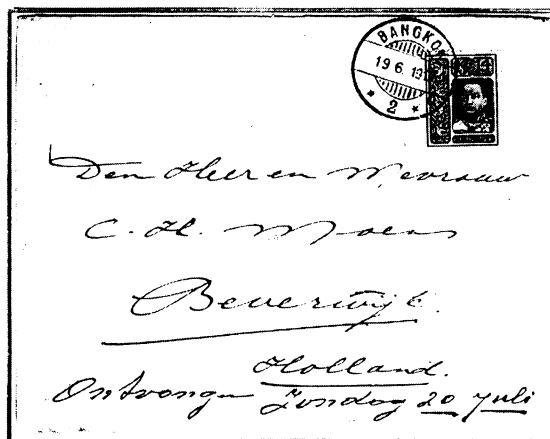 BANGKOK
19 6. 19
* 2 *
Den Heer en Mevrouw
C. H. Moens
Beverwijk.
Holland.
Ontvangen Zondag 20 Juli